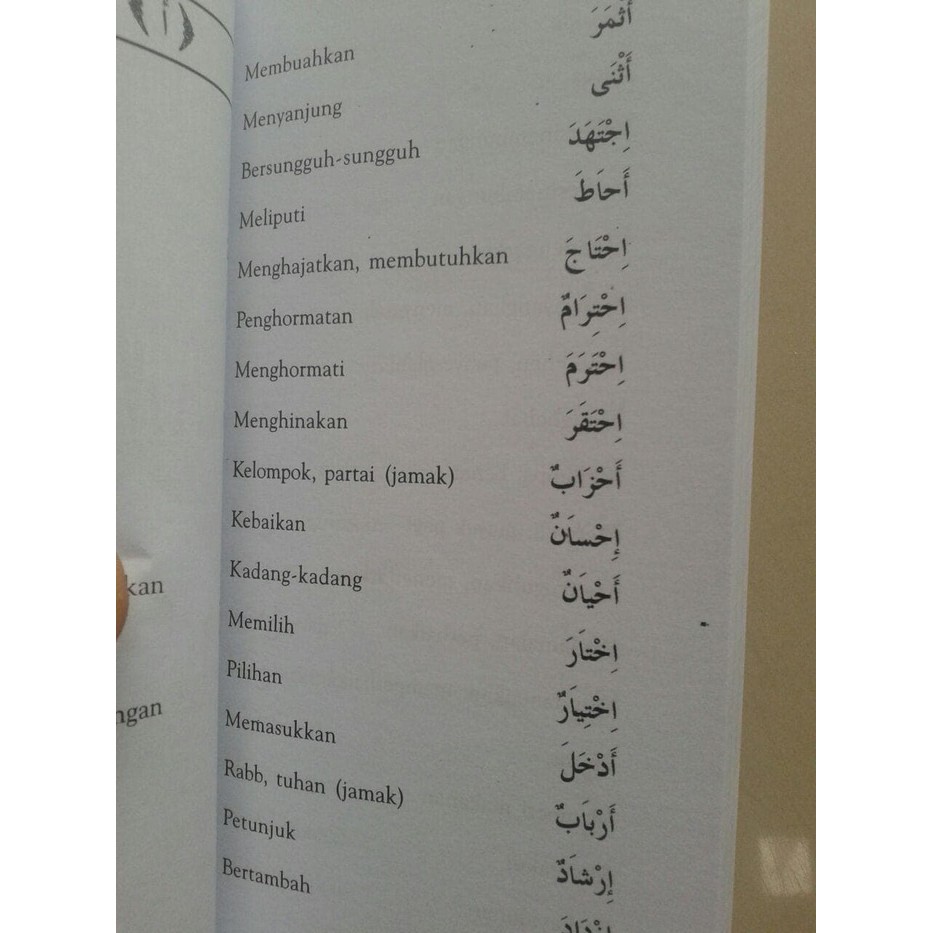 أ
kan
ngan
Membuahkan أَثْمَرَ
Menyanjung أَثْنَى
Bersungguh-sungguh اِجْتَهَدَ
Meliputi أَحَاطَ
Menghajatkan, membutuhkan اِحْتَاجَ
Penghormatan اِحْتِرَامٌ
Menghormati اِحْتَرَمَ
Menghinakan اِحْتَقَرَ
Kelompok, partai (jamak) أَحْزَابٌ
Kebaikan إِحْسَانٌ
Kadang-kadang أَحْيَانٌ
Memilih اِخْتَارَ
Pilihan اِخْتِيَارٌ
Memasukkan أَدْخَلَ
Rabb, tuhan (jamak) أَرْبَابٌ
Petunjuk إِرْشَادٌ
Bertambah